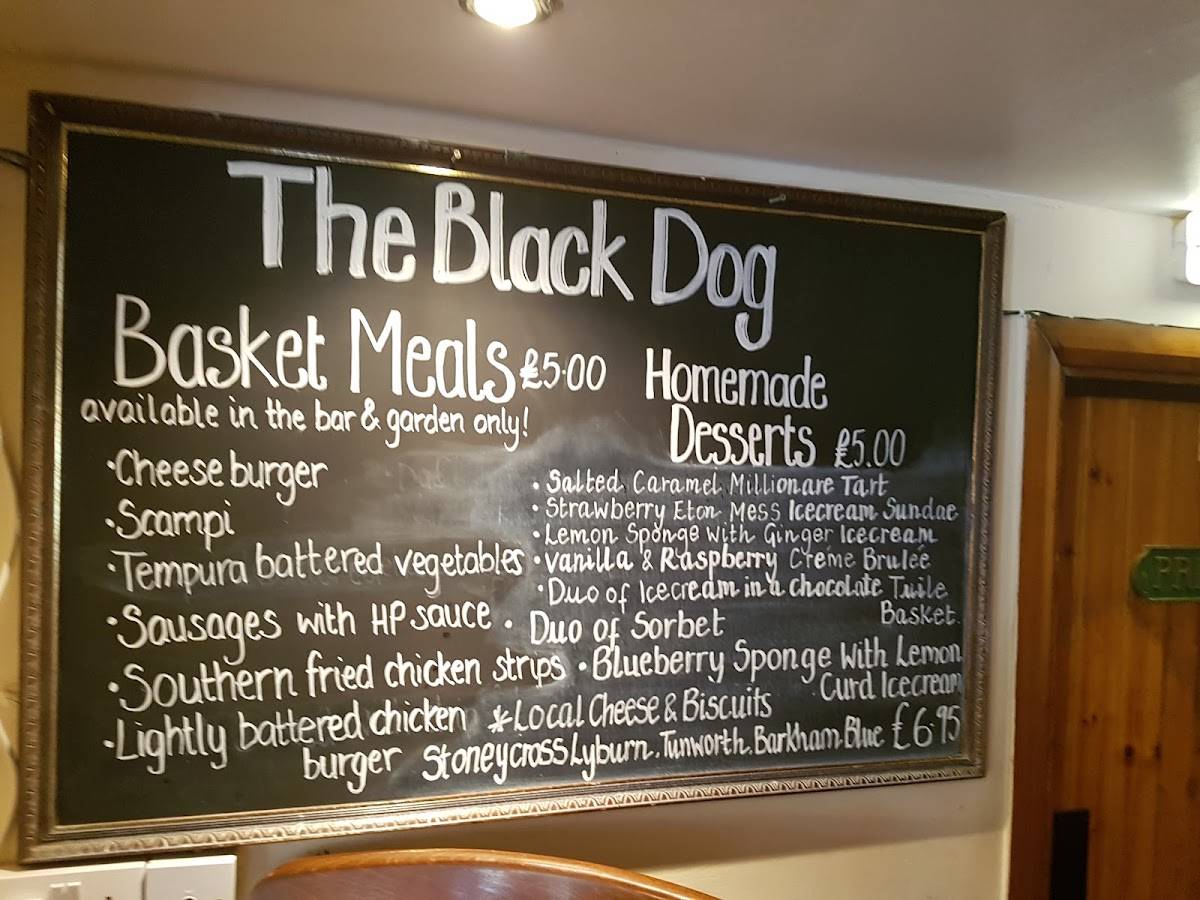 The Black Dog
Basket Meals £5.00
available in the bar & garden only!
·Cheese burger
·Scampi
·Tempura battered vegetables
·Sausages with HP sauce
·Southern fried chicken strips
·Lightly battered chicken
burger
Homemade
Desserts £5.00
·Salted Caramel Millionare Tart
·Strawberry Eton Mess Icecream Sundae
·Lemon Sponge With Ginger Icecream
·vanilla & Raspberry Créme Brulée
·Duo of Icecream in a chocolate Tuile
Basket.
·Duo of Sorbet
·Blueberry Sponge With Lemon
Curd Icecream
*Local Cheese & Biscuits
Stoneycross Lyburn. Tunworth. Barkham Blue £6.95